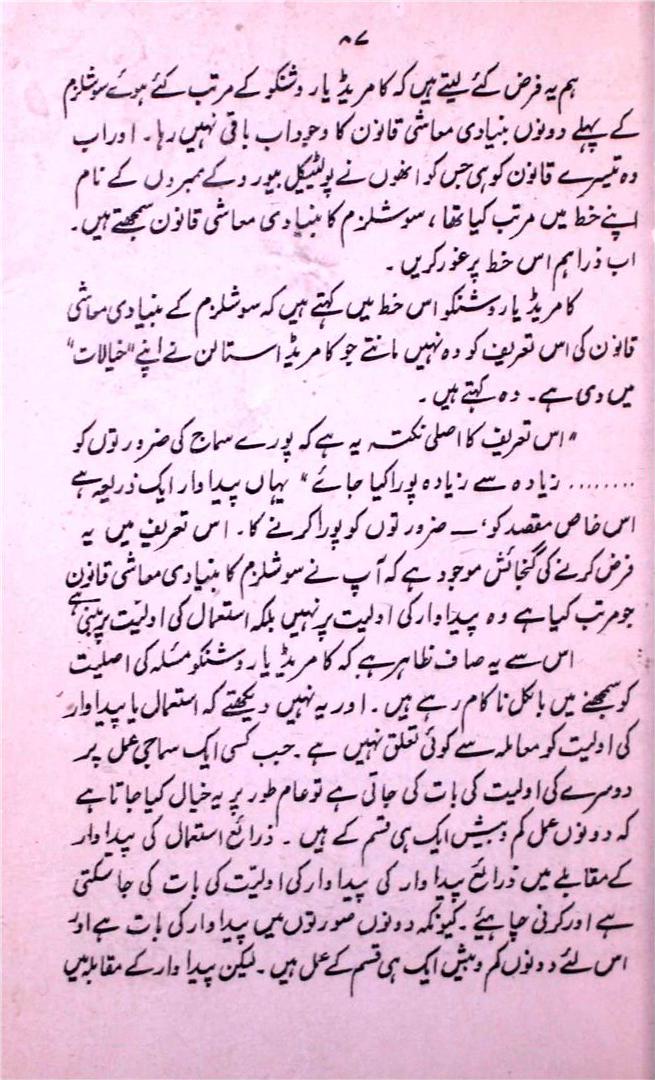 ۸۷
ہم یہ فرض کئے لیتے ہیں کہ کامریڈ یاروشنکو کے مرتب کئے ہوئے سوشلزم
کے پہلے دونوں بنیادی معاشی قانون کا وجود اب باقی نہیں رہا۔ اور اب
وہ تیسرے قانون کو ہی جس کو انھوں نے پولٹیکل بیورو کے ممبروں کے نام
اپنے خط میں مرتب کیا تھا، سوشلزم کا بنیادی معاشی قانون سمجھتے ہیں۔
اب ذرا ہم اس خط پر غور کریں۔
کامریڈ یاروشنکو اس خط میں کہتے ہیں کہ سوشلزم کے بنیادی معاشی
قانون کی اس تعریف کو وہ نہیں مانتے جو کامریڈ استالن نے اپنے "خیالات"
میں دی ہے۔ وہ کہتے ہیں۔
"اس تعریف کا اصلی نکتہ یہ ہے کہ پورے سماج کی ضرورتوں کو
........ زیادہ سے زیادہ پورا کیا جائے" یہاں پیداوار ایک ذریعہ ہے
اس خاص مقصد کو، — ضرورتوں کو پورا کرنے کا۔ اس تعریف میں یہ
فرض کرنے کی گنجائش موجود ہے کہ آپ نے سوشلزم کا بنیادی معاشی قانون
جو مرتب کیا ہے وہ پیداوار کی اولیت پر نہیں بلکہ استعمال کی اولیّت پر مبنی ہے
اس سے یہ صاف ظاہر ہے کہ کامریڈ یاروشنکو مسئلہ کی اصلیت
کو سمجھنے میں بالکل ناکام رہے ہیں۔ اور یہ نہیں دیکھتے کہ استعمال یا پیداوار
کی اولیت کو معاملہ سے کوئی تعلق نہیں ہے۔ جب کسی ایک سماجی عمل پر
دوسرے کی اولیت کی بات کی جاتی ہے تو عام طور پر یہ خیال کیا جاتا ہے
کہ دونوں عمل کم و بیش ایک ہی قسم کے ہیں۔ ذرائع استعمال کی پیداوار
کے مقابلے میں ذرائع پیداوار کی پیداوار کی اولیّت کی بات کی جا سکتی
ہے اور کرنی چاہیئے۔ کیونکہ دونوں صورتوں میں پیداوار کی بات ہے اور
اس لئے دونوں کم و بیش ایک ہی قسم کے عمل ہیں۔ لیکن پیداوار کے مقابلہ میں